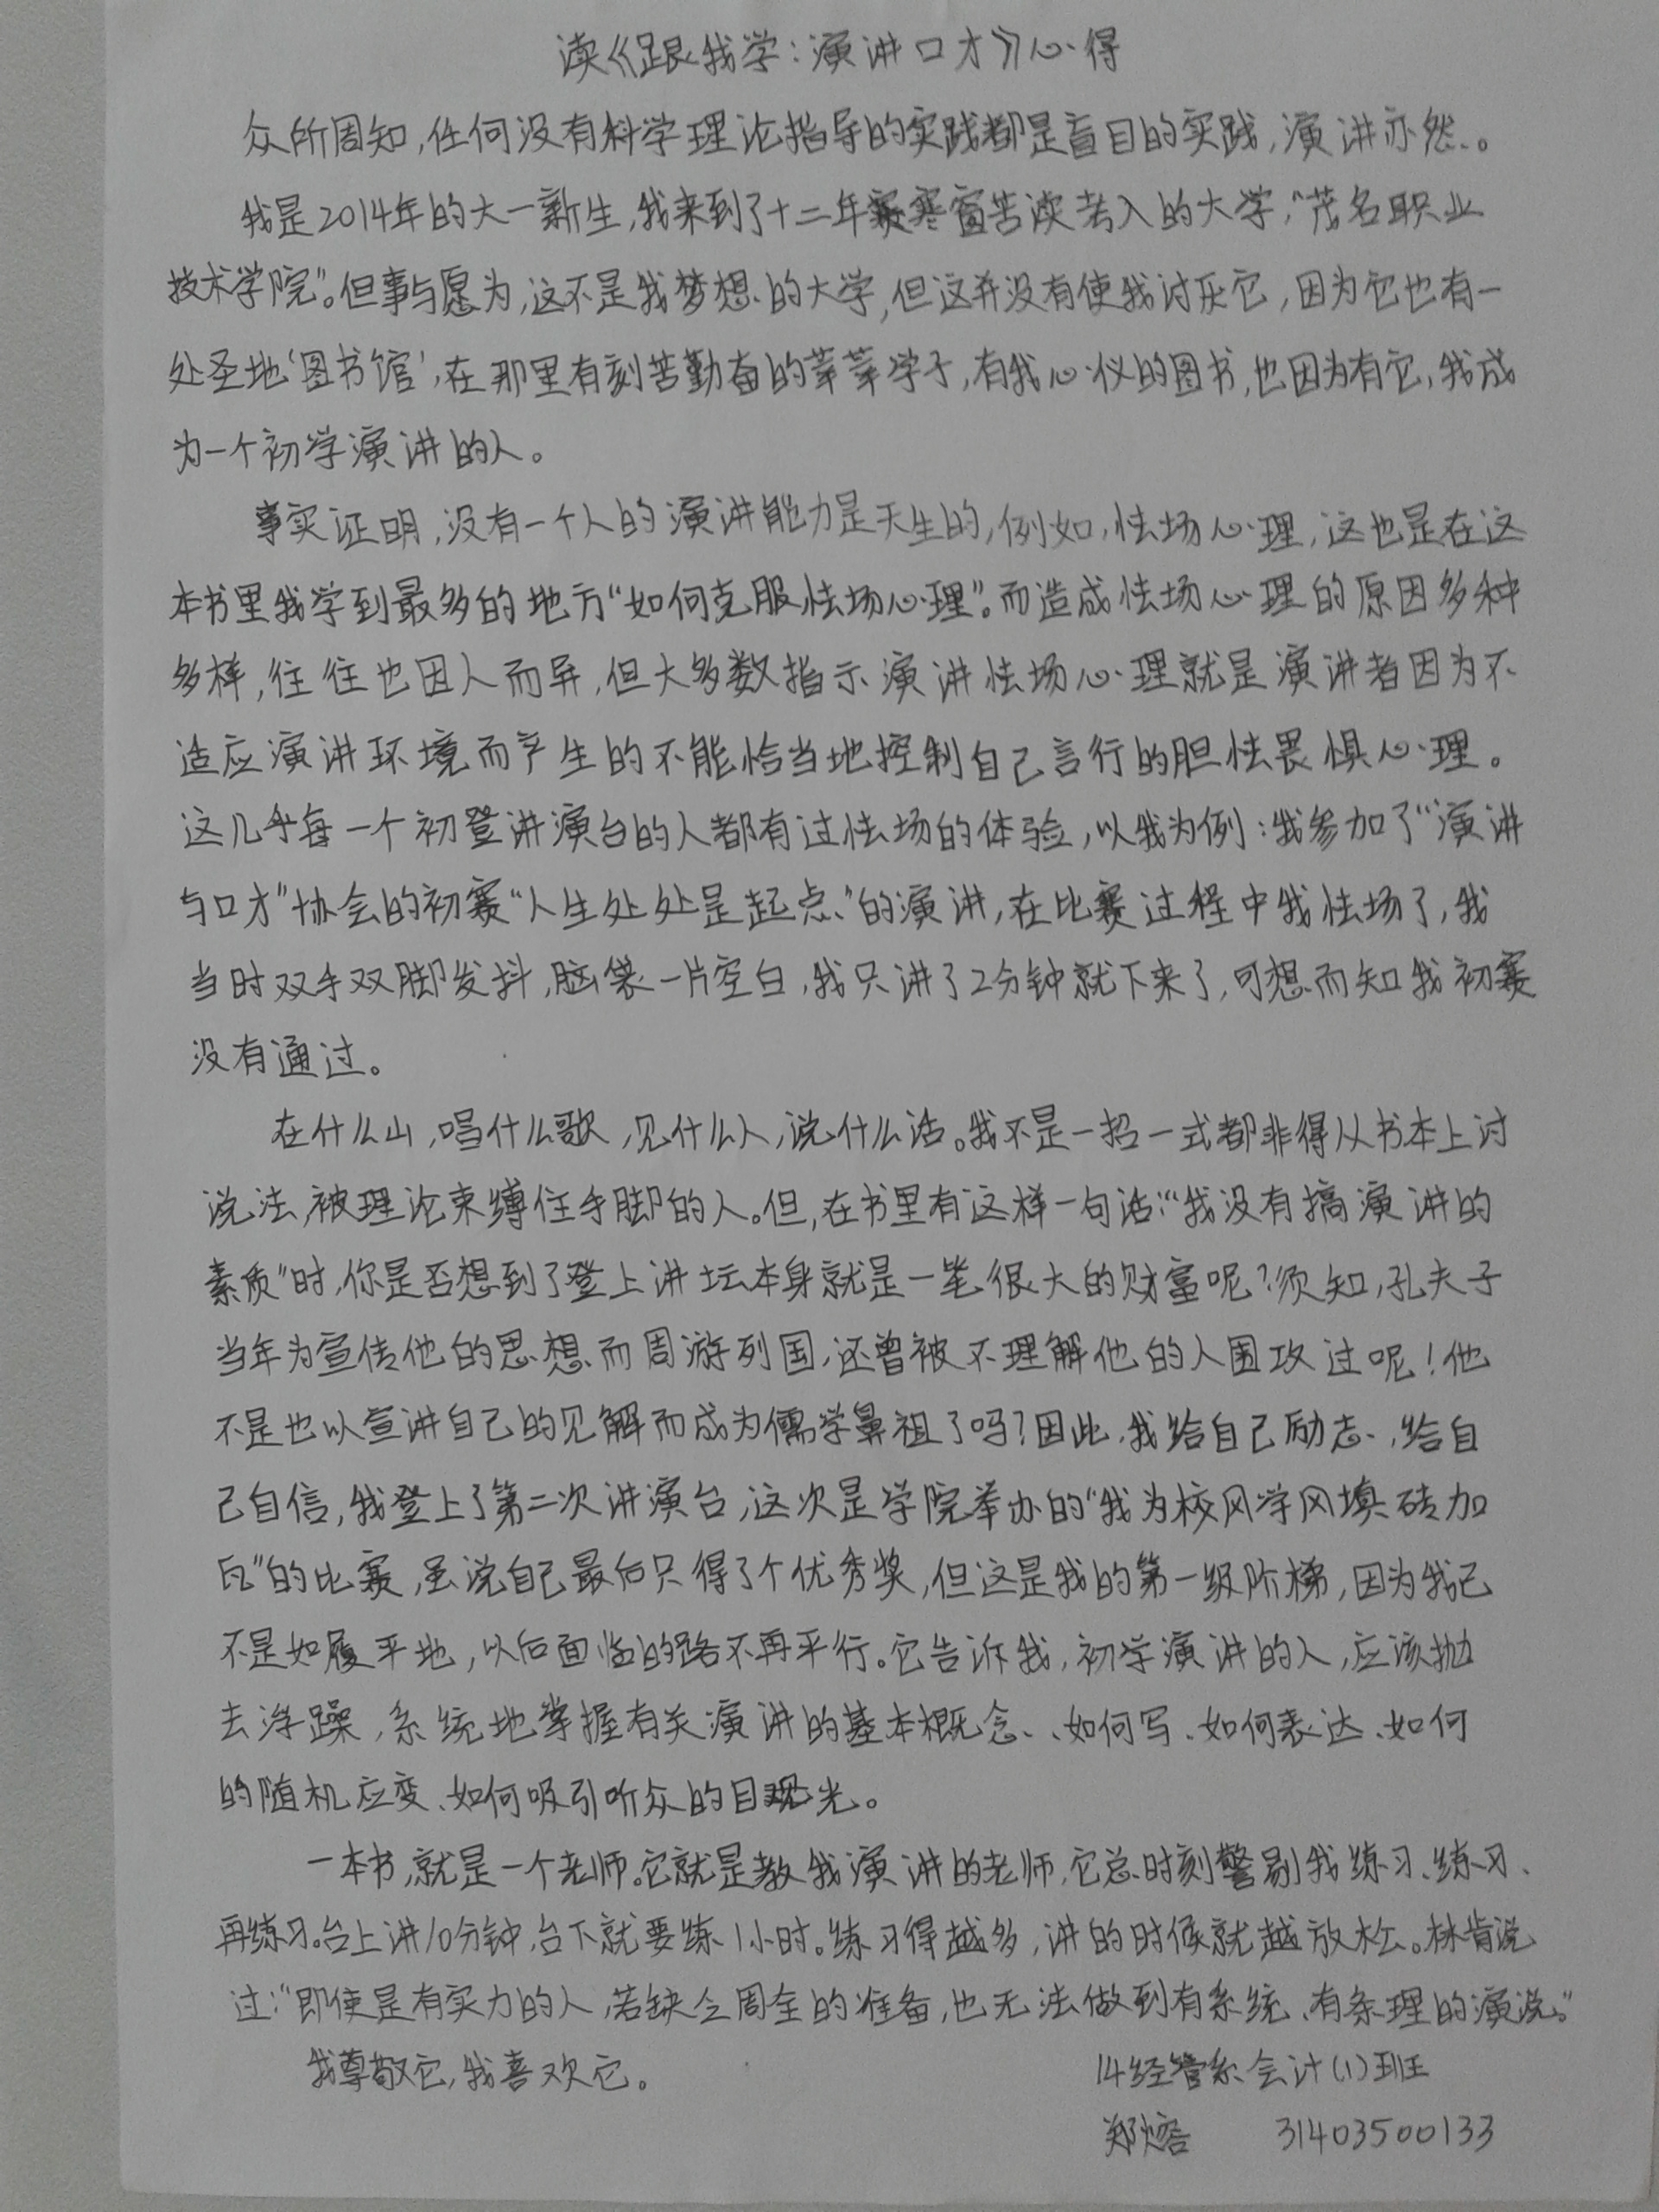 读《跟我学:演讲口才》心得
众所周知,任何没有科学理论指导的实践都是盲目的实践,演讲亦然。
我是2014年的大一新生,我来到了十二年寒窗苦读考入的大学,“茂名职业
技术学院”。但事与愿为,这不是我梦想的大学,但这并没有使我讨厌它,因为它也有一
处圣地‘图书馆’,在那里有刻苦勤奋的莘莘学子,有我心仪的图书,也因为有它,我成
为一个初学演讲的人。
事实证明,没有一个人的演讲能力是天生的,例如,怯场心理,这也是在这
本书里我学到最多的地方“如何克服怯场心理”。而造成怯场心理的原因多种
多样,往往也因人而异,但大多数指示演讲怯场心理就是演讲者因为不
适应演讲环境而产生的不能恰当地控制自己言行的胆怯畏惧心理。
这几乎每一个初登讲演台的人都有过怯场的体验,以我为例:我参加了“演讲
与口才”协会的初赛“人生处处是起点”的演讲,在比赛过程中我怯场了,我
当时双手双脚发抖,脑袋一片空白,我只讲了2分钟就下来了,可想而知我初赛
没有通过。
在什么山,唱什么歌,见什么人,说什么话。我不是一招一式都非得从书本上讨
说法,被理论束缚住手脚的人。但,在书里有这样一句话:“‘我没有搞演讲的
素质”时,你是否想到了登上讲坛本身就是一笔很大的财富呢?须知,孔夫子
当年为宣传他的思想而周游列国,还曾被不理解他的人围攻过呢!他
不是也以宣讲自己的见解而成为儒学鼻祖了吗?因此,我给自己励志,给自
己自信,我登上了第二次讲演台,这次是学院举办的“我为校风学风填砖加
瓦”的比赛,虽说自己最后只得了个优秀奖,但这是我的第一级阶梯,因为我已
不是如履平地,以后面临的路不再平行。它告诉我,初学演讲的人,应该抛
去浮躁,系统地掌握有关演讲的基本概念、如何写、如何表达、如何
的随机应变、如何吸引听众的目光。
一本书,就是一个老师。它就是教我演讲的老师,它总时刻警剔我练习、练习、
再练习。台上讲10分钟,台下就要练1小时。练习得越多,讲的时候就越放松。林肯说
过:“即使是有实力的人,若缺乏周全的准备,也无法做到有系统、有条理的演说。”
我尊敬它,我喜欢它。
14经管系会计(1)班
郑熔 31403500133